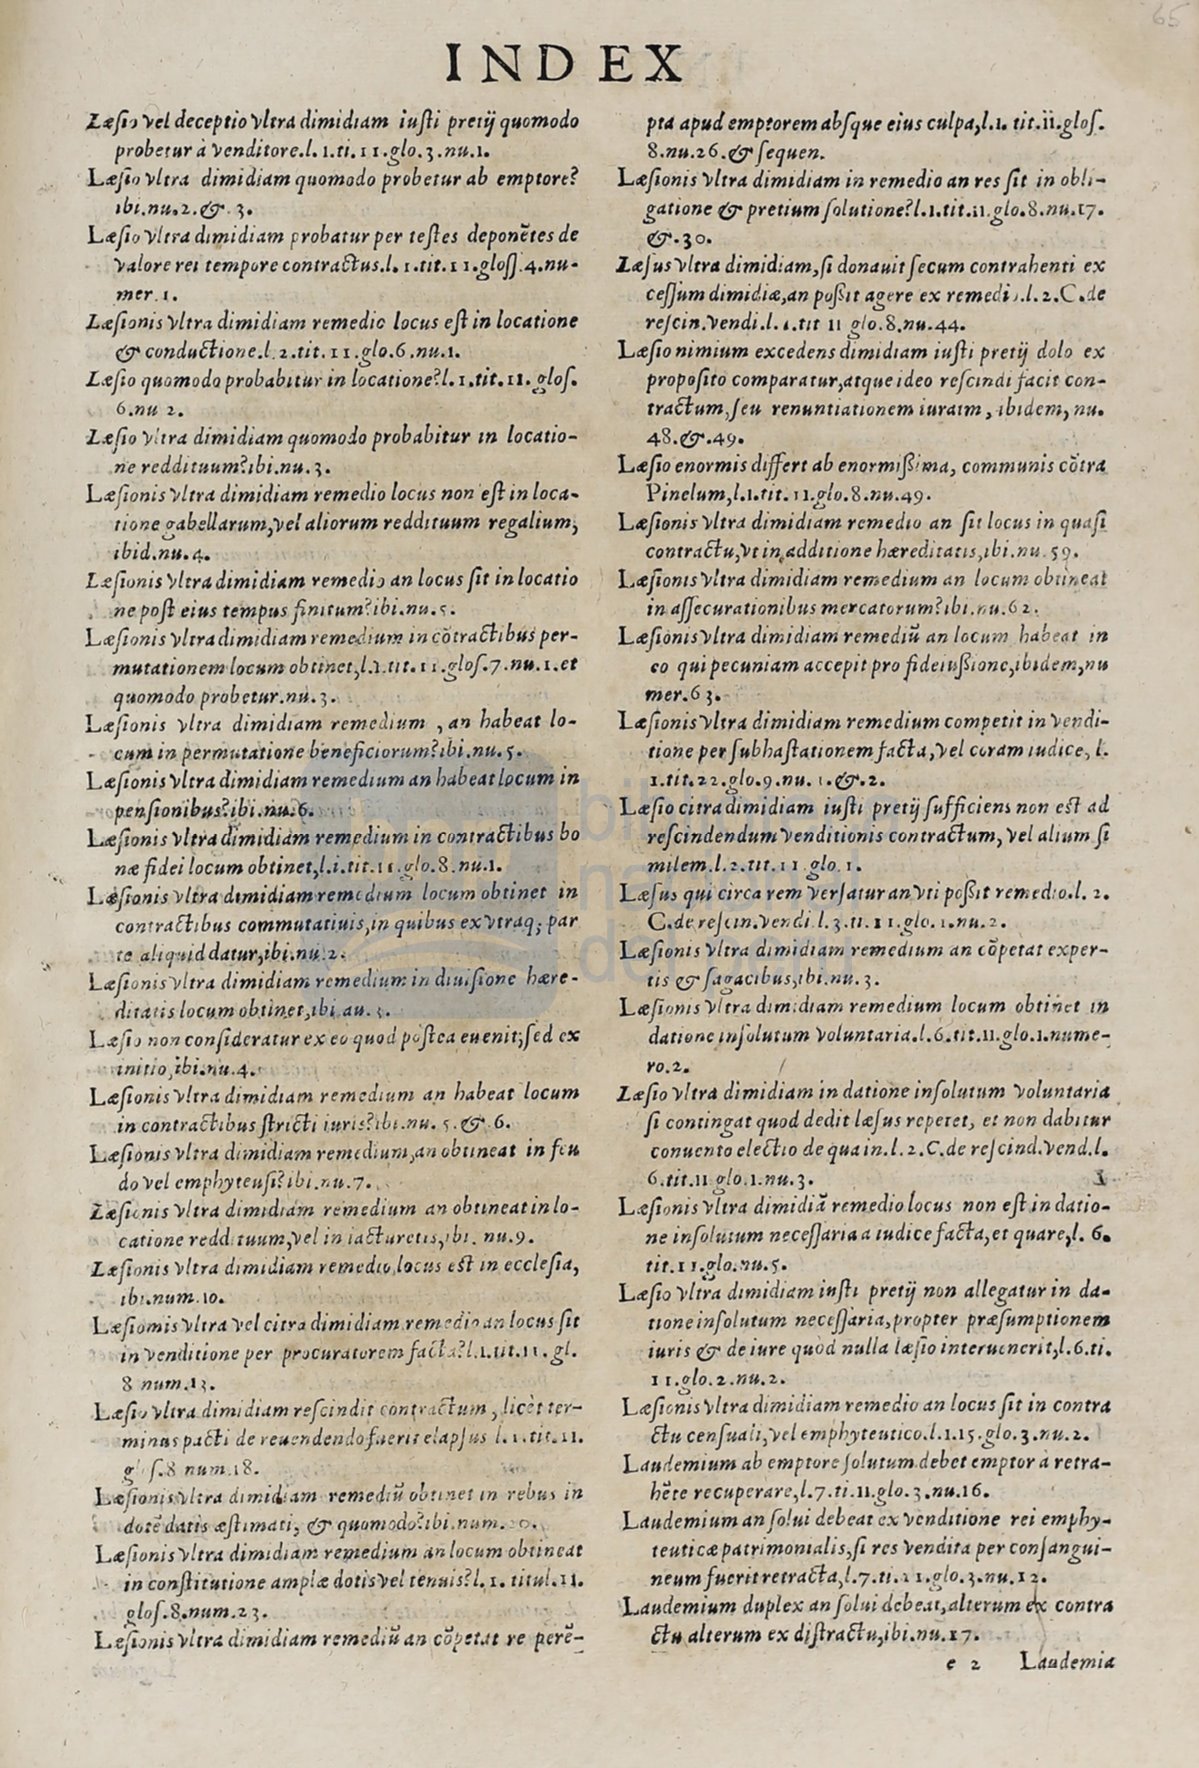 65
INDEX
Læsio vel deceptio vltra dimidiam iusti pretij quomodo
probetur à venditore.l.1.ti.11.glo.3.nu.1.
Læsio vltra dimidiam quomodo probetur ab emptore?
ibi.nu.2.&.3.
Læsio vltra dimidiam probatur per testes deponẽtes de
valore rei tempore contractus.l.1.tit.11.gloss.4.nu-
mer.1.
Læsionis vltra dimidiam remedio locus est in locatione
& conductione.l.2.tit.11.glo.6.nu.1.
Læsio quomodo probabitur in locatione?l.1.tit.11.glos.
6.nu 2.
Læsio vltra dimidiam quomodo probabitur in locatio-
ne reddituum?ibi.nu.3.
Læsionis vltra dimidiam remedio locus non est in loca-
tione gabellarum,vel aliorum reddituum regalium,
ibid.nu.4.
Læsionis vltra dimidiam remedio an locus sit in locatio
ne post eius tempus finitum?ibi.nu.5.
Læsionis vltra dimidiam remedium in cõtractibus per-
mutationem locum obtinet,l.1.tit.11.glos.7.nu.1.et
quomodo probetur.nu.3.
Læsionis vltra dimidiam remedium , an habeat lo-
cum in permutatione beneficiorum?ibi.nu.5.
Læsionis vltra dimidiam remedium an habeat locum in
pensionibus?ibi.nu.6.
Læsionis vltra dimidiam remedium in contractibus bo
næ fidei locum obtinet,l.i.tit.11.glo.8.nu.1.
Læsionis vltra dimidiam remedium locum obtinet in
contractibus commutatiuis,in quibus ex vtraq; par
te aliquid datur,ibi.nu.2.
Læsionis vltra dimidiam remedium in diuisione hære-
ditatis locum obtinet,ibi.au.3.
Læsio non consideratur ex eo quod postea euenit;sed ex
initio,ibi.nu.4.
Læsionis vltra dimidiam remedium an habeat locum
in contractibus stricti iuris?ibi.nu.5.&.6.
Læsionis vltra dimidiam remedium,an obtineat in feu
do vel emphyteusi?ibi.nu.7.
Læsionis vltra dimidiam remedium an obtineat in lo-
catione reddituum,vel in iacturetis,ibi.nu.9.
Læsionis vltra dimidiam remedio,locus est in ecclesia,
ibi.num.10.
Læsiomis vltra vel citra dimidiam remedio an locus sit
in venditione per procuratorem facta?l.1.tit.11.gl.
8 num.13.
Læsio vltra dimidiam rescindit contractum, licèt ter-
minus pacti de reuendendo fuerit elapsus l.1.tit.11.
glos.8 num.18.
Læsionis vltra dimidiam remediũ obtinet in rebus in
dotẽ datis æstimati, & quomodo?ibi.num.20.
Læsionis vltra dimidiam remedium an locum obtineat
in constitutione amplæ dotis vel tenuis?l.1. titul.11.
glos.8.num.23.
Læsionis vltra dimidiam remediũ an cõpetat re perẽ-
pta apud emptorem absque eius culpa,l.1. tit.ii.glos.
8.nu.26.& sequen.
Læsionis vltra dimidiam in remedio an res sit in obli-
gatione & pretium solutione?l.1.tit.11.glo.8.nu.17.
&.30.
Læsus vltra dimidiam,si donauit secum contrahenti ex
cessum dimidiæ,an possit agere ex remedio.l.2.C.de
rescin.vendi.l.1.tit 11 glo.8.nu.44.
Læsio nimium excedens dimidiam iusti pretij dolo ex
proposito comparatur,atque ideo rescindi facit con-
tractum,seu renuntiationem iuratm, ibidem, nu.
48.&.49.
Læsio enormis differt ab enormissima, communis cõtra
Pinelum,l.1.tit.11.glo.8.nu.49.
Læsionis vltra dimidiam remedio an sit locus in quasi
contractu,vt in additione hæreditatis,ibi.nu.59.
Læsionis vltra dimidiam remedium an locum obtineat
in assecurationibus mercatorum?ibi.nu.62.
Læsionis vltra dimidiam remediũ an locum habeat in
eo qui pecuniam accepit pro fideiussione,ibidem,nu
mer.63.
Læsionis vltra dimidiam remedium competit in vendi-
tione per subhastationem facta,vel coram iudice, l.
1.tit.22.glo.9.nu.1.&.2.
Læsio citra dimidiam iusti pretij sufficiens non est ad
rescindendum venditionis contractum, vel alium si
milem.l.2.tit.11.glo.1.
Læsus qui circa rem versatur an vti possit remedio.l.2.
C.de rescin.vendi.l.3.ti.11.glo.1.nu.2.
Læsionis vltra dimidiam remedium an cõpetat exper-
tis & sagacibus,ibi.nu.3.
Læsionis vltra dimidiam remedium locum obtinet in
datione insolutum voluntaria.l.6.tit.11.glo.1.nume-
ro.2.
Læsio vltra dimidiam in datione insolutum voluntaria
si contingat quod dedit læsus repetet, et non dabitur
conuento electio de qua in.l.2.C.de rescind.vend.l.
6.tit.11 glo.1.nu.3.
Læsionis vltra dimidiã remedio locus non est in datio-
ne insolutum necessaria a iudice facta,et quare,l.6.
tit.11.glo.nu.5.
Læsio vltra dimidiam iusti pretij non allegatur in da-
tione insolutum necessaria,propter præsumptionem
iuris & de iure quòd nulla læsio interuenerit,l.6.ti.
11.glo.2.nu.2.
Læsionis vltra dimidiam remedio an locus sit in contra
ctu censuali,vel emphyteutico.l.1.15.glo.3.nu.2.
Laudemium ab emptore solutum debet emptor à retra-
hẽte recuperare,l.7.ti.11.glo.3.nu.16.
Laudemium an solui debeat ex venditione rei emphy-
teuticæ patrimonialis,si res vendita per consangui-
neum fuerit retracta,l.7.ti.11.glo.3.nu.12.
Laudemium duplex an solui debeat,alterum ex contra
ctu alterum ex distractu,ibi.nu.17.
e 2 Laudemia